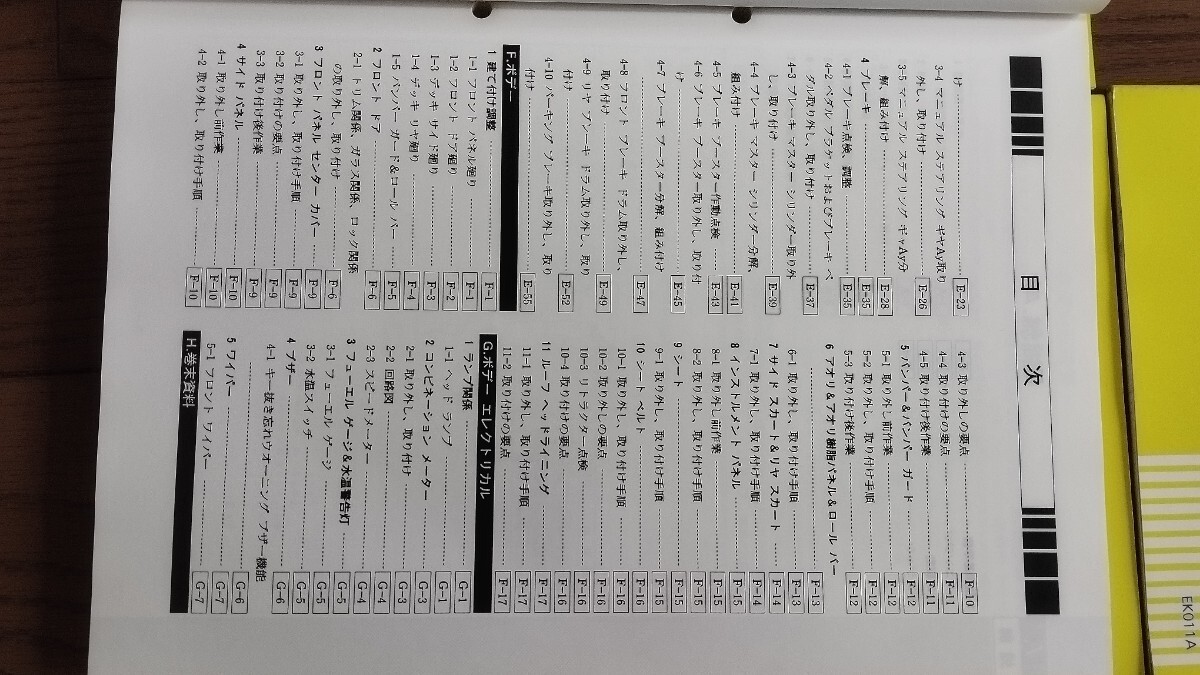 目 次
け E-23
3-4 マニュアル ステアリング ギヤAy取り
外し、取り付け E-26
3-5 マニュアル ステアリング ギヤAy分
解、組み付け E-28
4 ブレーキ E-35
4-1 ブレーキ点検、調整 E-35
4-2 ペダル ブラケットおよびブレーキ ペ
ダル取り外し、取り付け E-37
4-3 ブレーキ マスター シリンダー取り外
し、取り付け E-39
4-4 ブレーキ マスター シリンダー分解、
組み付け E-41
4-5 ブレーキ ブースター作動点検 E-43
4-6 ブレーキ ブースター取り外し、取り付
け E-45
4-7 ブレーキ ブースター分解、組み付け
E-47
4-8 フロント ブレーキ ドラム取り外し、
取り付け E-49
4-9 リヤ ブレーキ ドラム取り外し、取り
付け E-52
4-10 パーキング ブレーキ取り外し、取り
付け E-55
F.ボデー
1 建て付け調整 F-1
1-1 フロント パネル廻り F-1
1-2 フロント ドア廻り F-2
1-3 デッキ サイド廻り F-3
1-4 デッキ リヤ廻り F-4
1-5 バンパー ガード&ロール バー F-5
2 フロント ドア F-6
2-1 トリム関係、ガラス関係、ロック関係
の取り外し、取り付け F-6
3 フロント パネル センター カバー F-9
3-1 取り外し、取り付け手順 F-9
3-2 取り付けの要点 F-9
3-3 取り付け後作業 F-9
4 サイド パネル F-10
4-1 取り外し前作業 F-10
4-2 取り外し、取り付け手順 F-10
4-3 取り外しの要点 F-10
4-4 取り付けの要点 F-11
4-5 取り付け後作業 F-11
5 バンパー&バンパー ガード F-12
5-1 取り外し前作業 F-12
5-2 取り外し、取り付け手順 F-12
5-3 取り付け後作業 F-12
6 アオリ&アオリ樹脂パネル&ロール バー
F-13
6-1 取り外し、取り付け手順 F-13
7 サイド スカート&リヤ スカート F-14
7-1 取り外し、取り付け手順 F-14
8 インストルメント パネル F-15
8-1 取り外し前作業 F-15
8-2 取り外し、取り付け手順 F-15
9 シート F-15
9-1 取り外し、取り付け手順 F-15
10 シート ベルト F-16
10-1 取り外し、取り付け手順 F-16
10-2 取り外しの要点 F-16
10-3 リトラクター点検 F-16
10-4 取り付けの要点 F-16
11 ルーフ ヘッドライニング F-17
11-1 取り外し、取り付け手順 F-17
11-2 取り付けの要点 F-17
G.ボデー エレクトリカル
1 ランプ関係 G-1
1-1 ヘッド ランプ G-1
2 コンビネーション メーター G-3
2-1 取り外し、取り付け G-3
2-2 回路図 G-4
2-3 スピードメーター G-4
3 フューエル ゲージ&水温警告灯 G-5
3-1 フューエル ゲージ G-5
3-2 水温スイッチ G-5
4 ブザー G-6
4-1 キー抜き忘れウオーニング ブザー機能
G-6
5 ワイパー G-7
5-1 フロント ワイパー G-7
H.巻末資料
EK011A